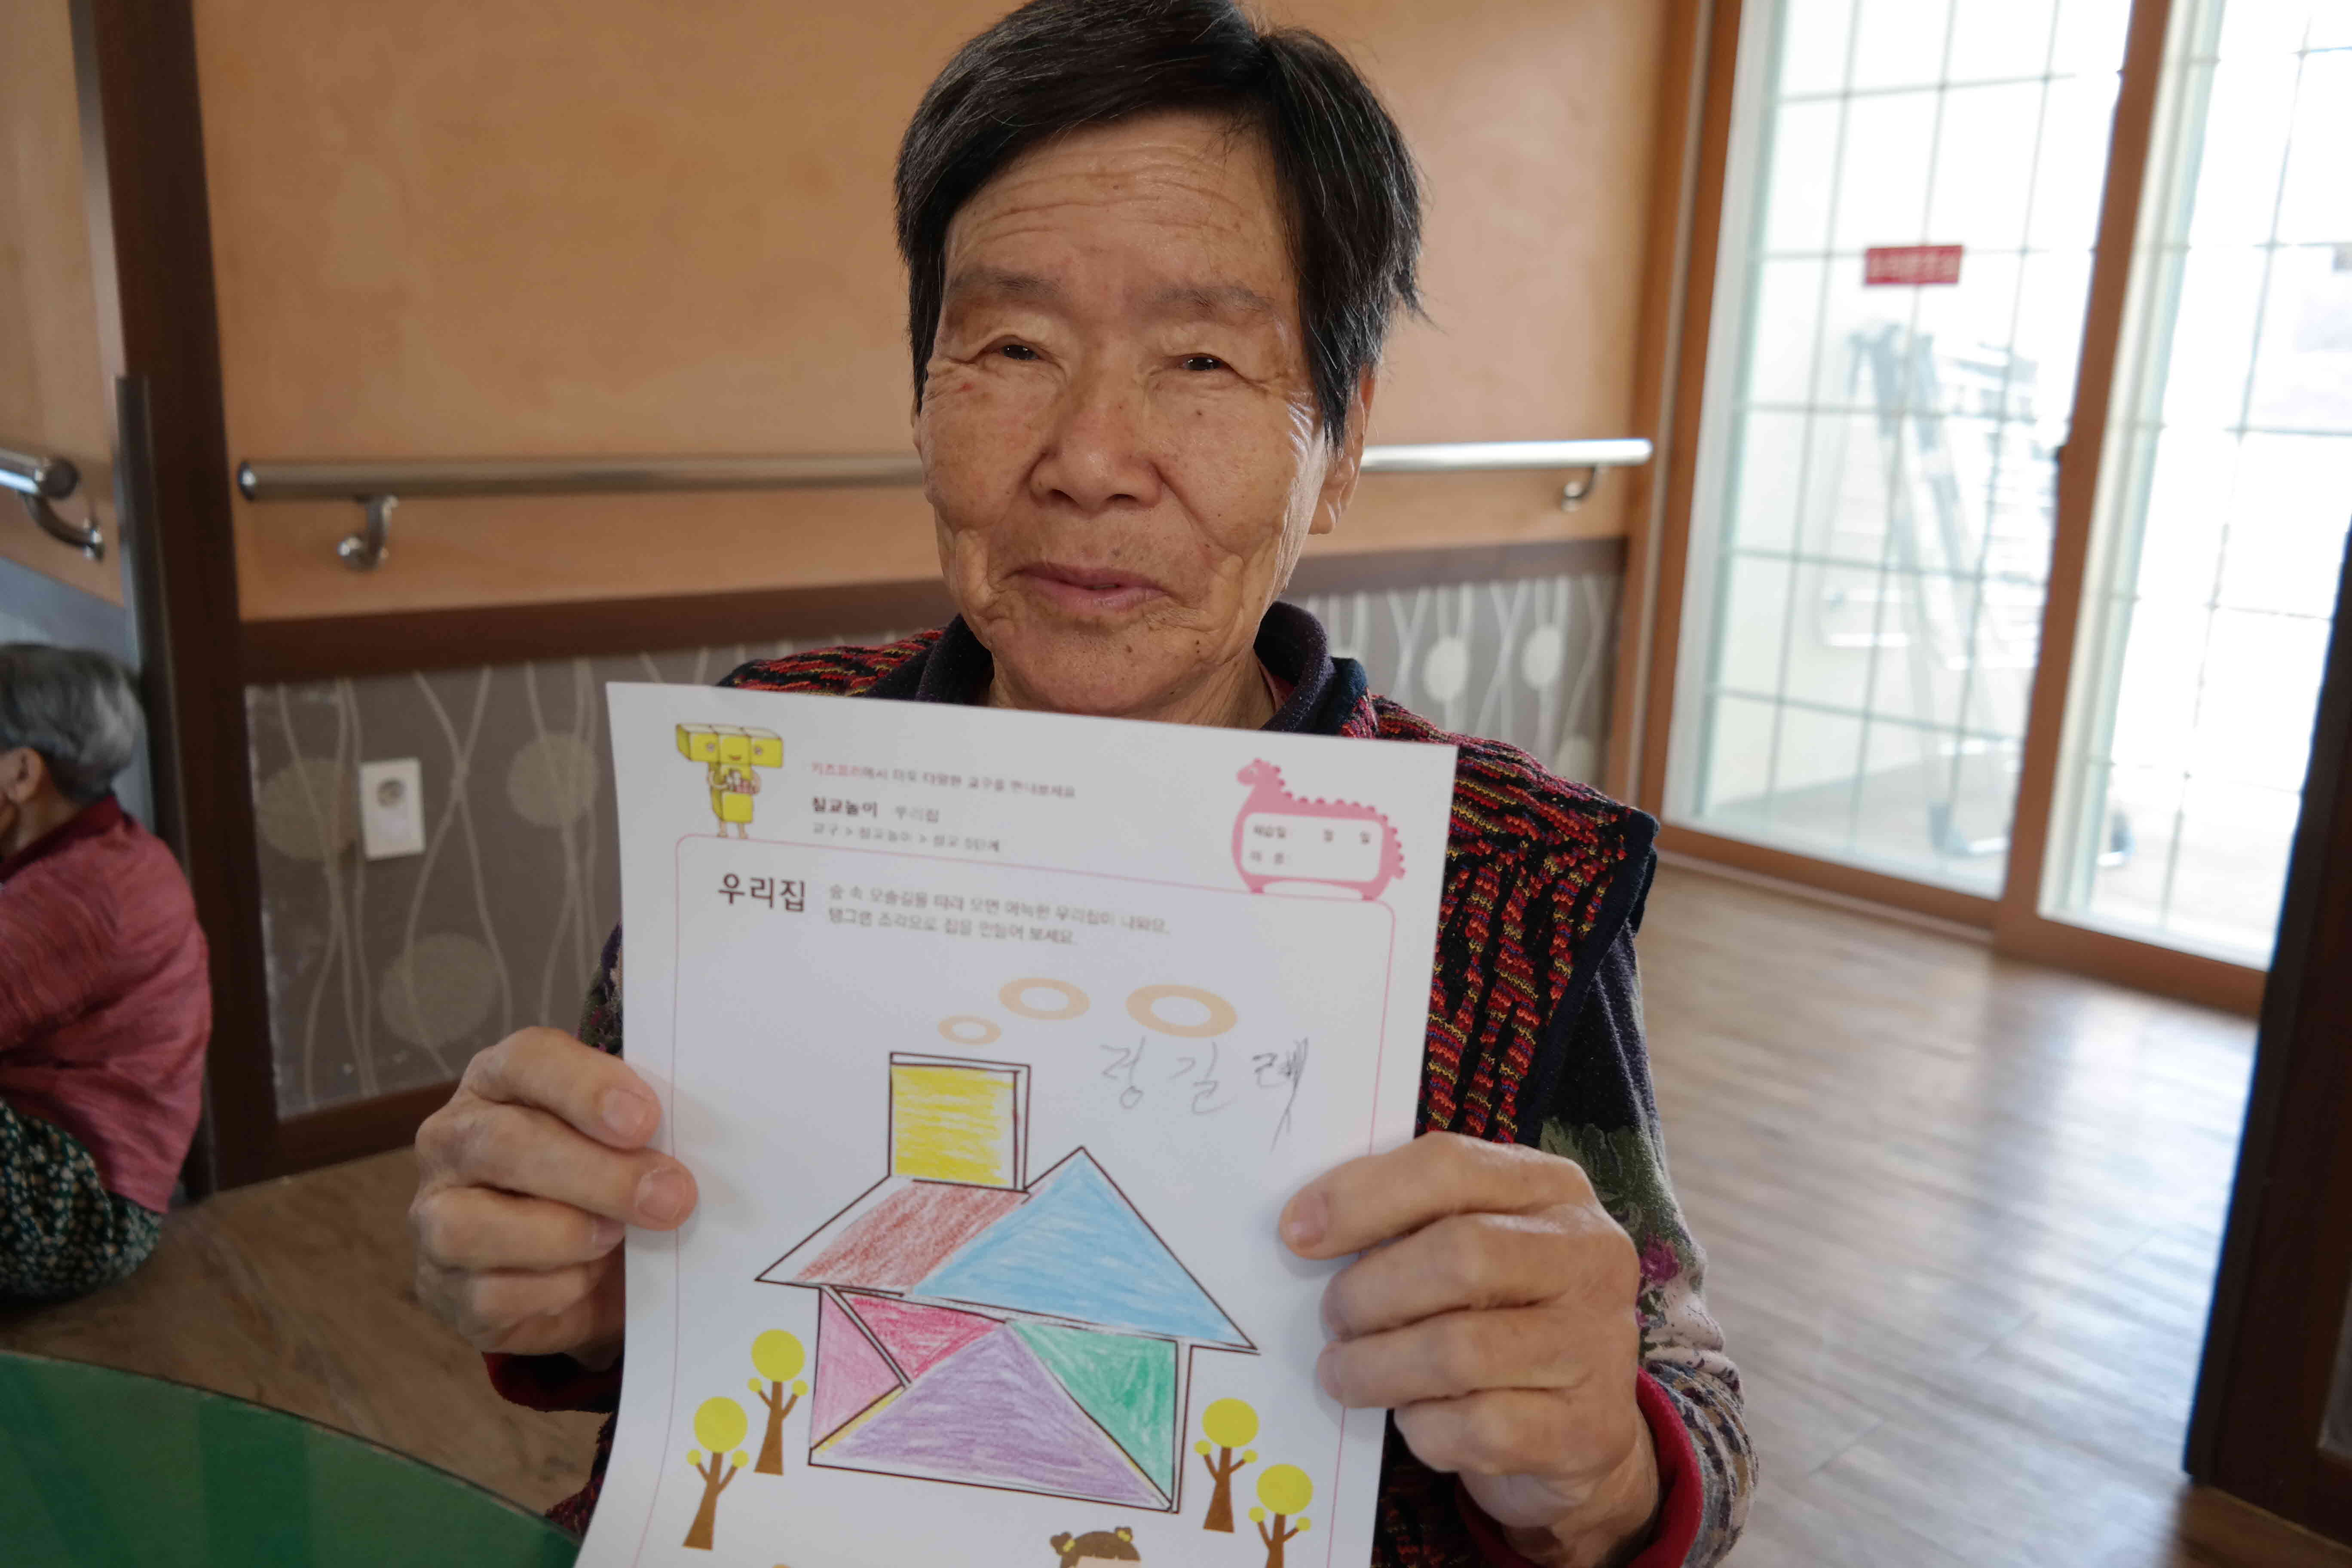 키즈프리에서 더욱 다양한 교구를 만나보세요
칠교놀이 우리집
교구 > 칠교놀이 > 칠교 5단계
학습일 : 월 일
이 름 :
우리집
숲 속 오솔길을 따라 오면 아늑한 우리집이 나와요.
탱그램 조각으로 집을 만들어 보세요.
정길례